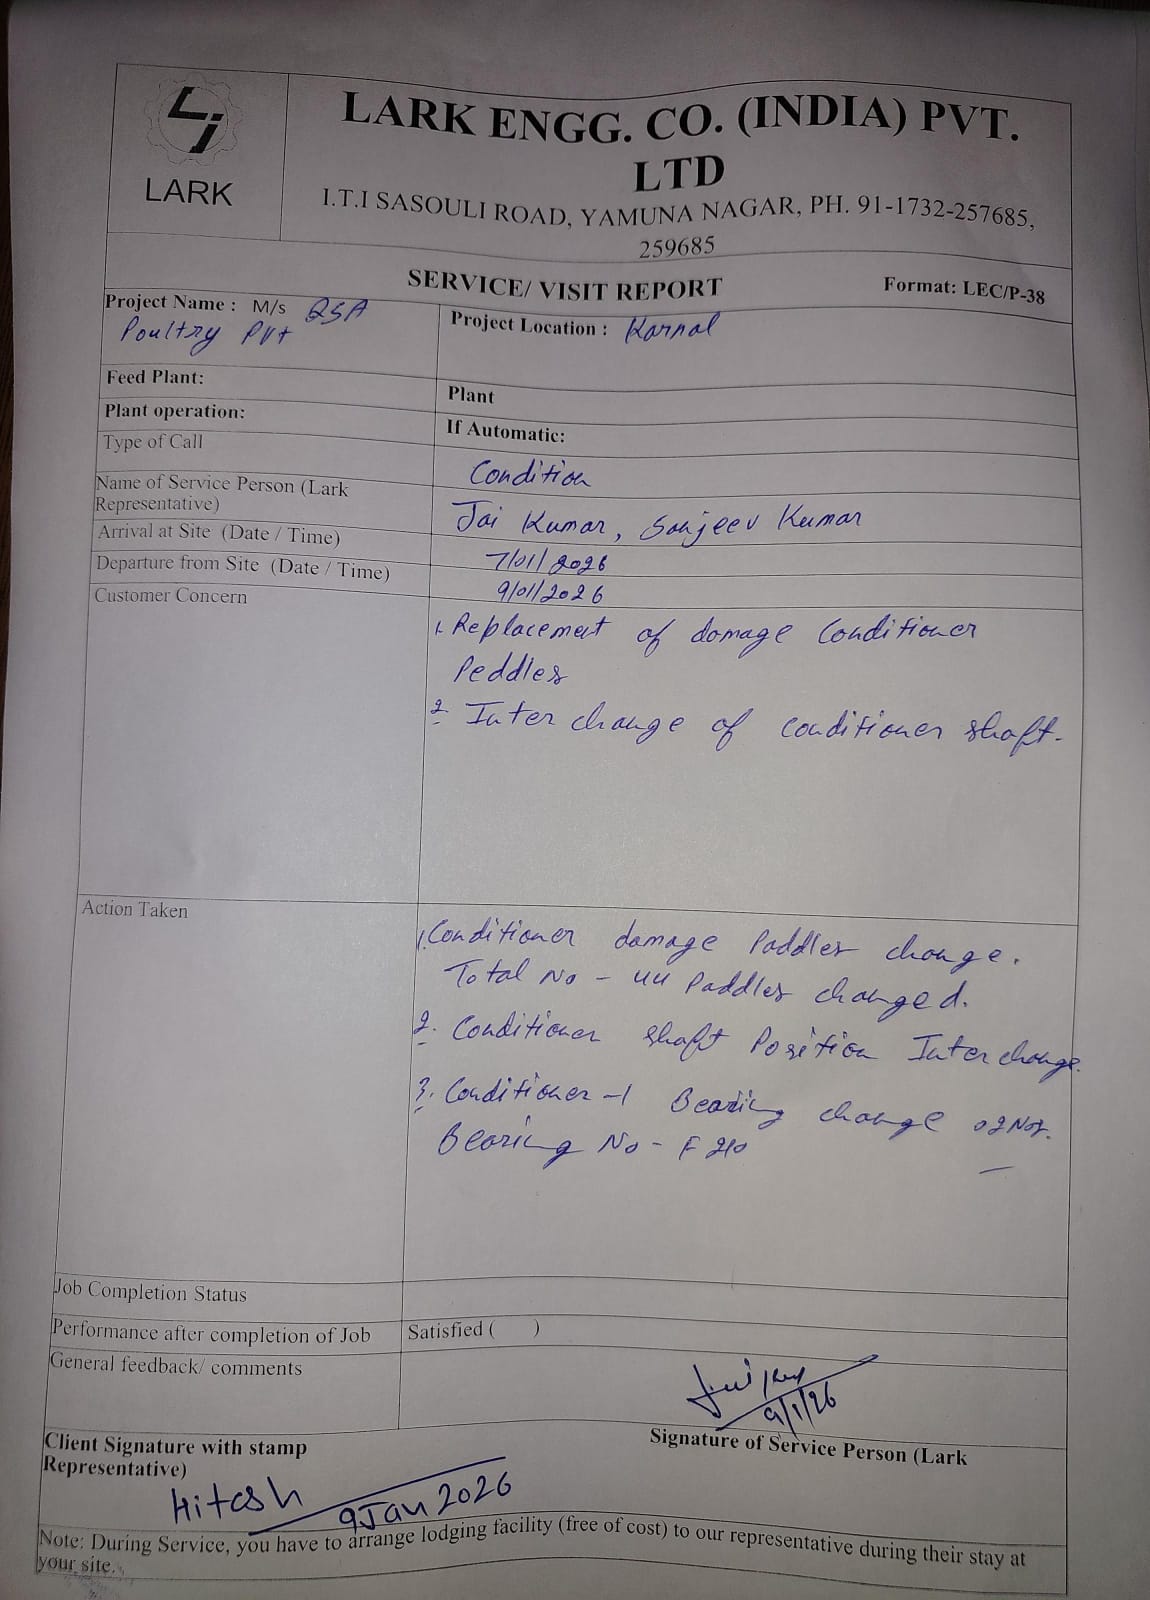 LARK
LARK ENGG. CO. (INDIA) PVT.
LTD
I.T.I SASOULI ROAD, YAMUNA NAGAR, PH. 91-1732-257685,
259685
SERVICE/ VISIT REPORT
Format: LEC/P-38
Project Name : M/s QSA
Poultry Pvt
Project Location : Karnal
Feed Plant:
Plant
Plant operation:
If Automatic:
Type of Call
Condition
Name of Service Person (Lark
Representative)
Jai Kumar, Sanjeev Kumar
Arrival at Site (Date / Time)
7/01/2026
Departure from Site (Date / Time)
9/01/2026
Customer Concern
1. Replacement of damage Conditioner
Peddles
2. Inter change of conditioner shaft.
Action Taken
1. Conditioner damage Paddles change.
Total No - 44 Paddles changed.
2. Conditioner shaft Position Interchange.
3. Conditioner -1 Bearing change 02Nos.
Bearing No - F 210
Job Completion Status
Performance after completion of Job
Satisfied ( )
General feedback/ comments
9/1/26
Client Signature with stamp
Representative)
Signature of Service Person (Lark
Hitesh
9 Jan 2026
Note: During Service, you have to arrange lodging facility (free of cost) to our representative during their stay at
your site.